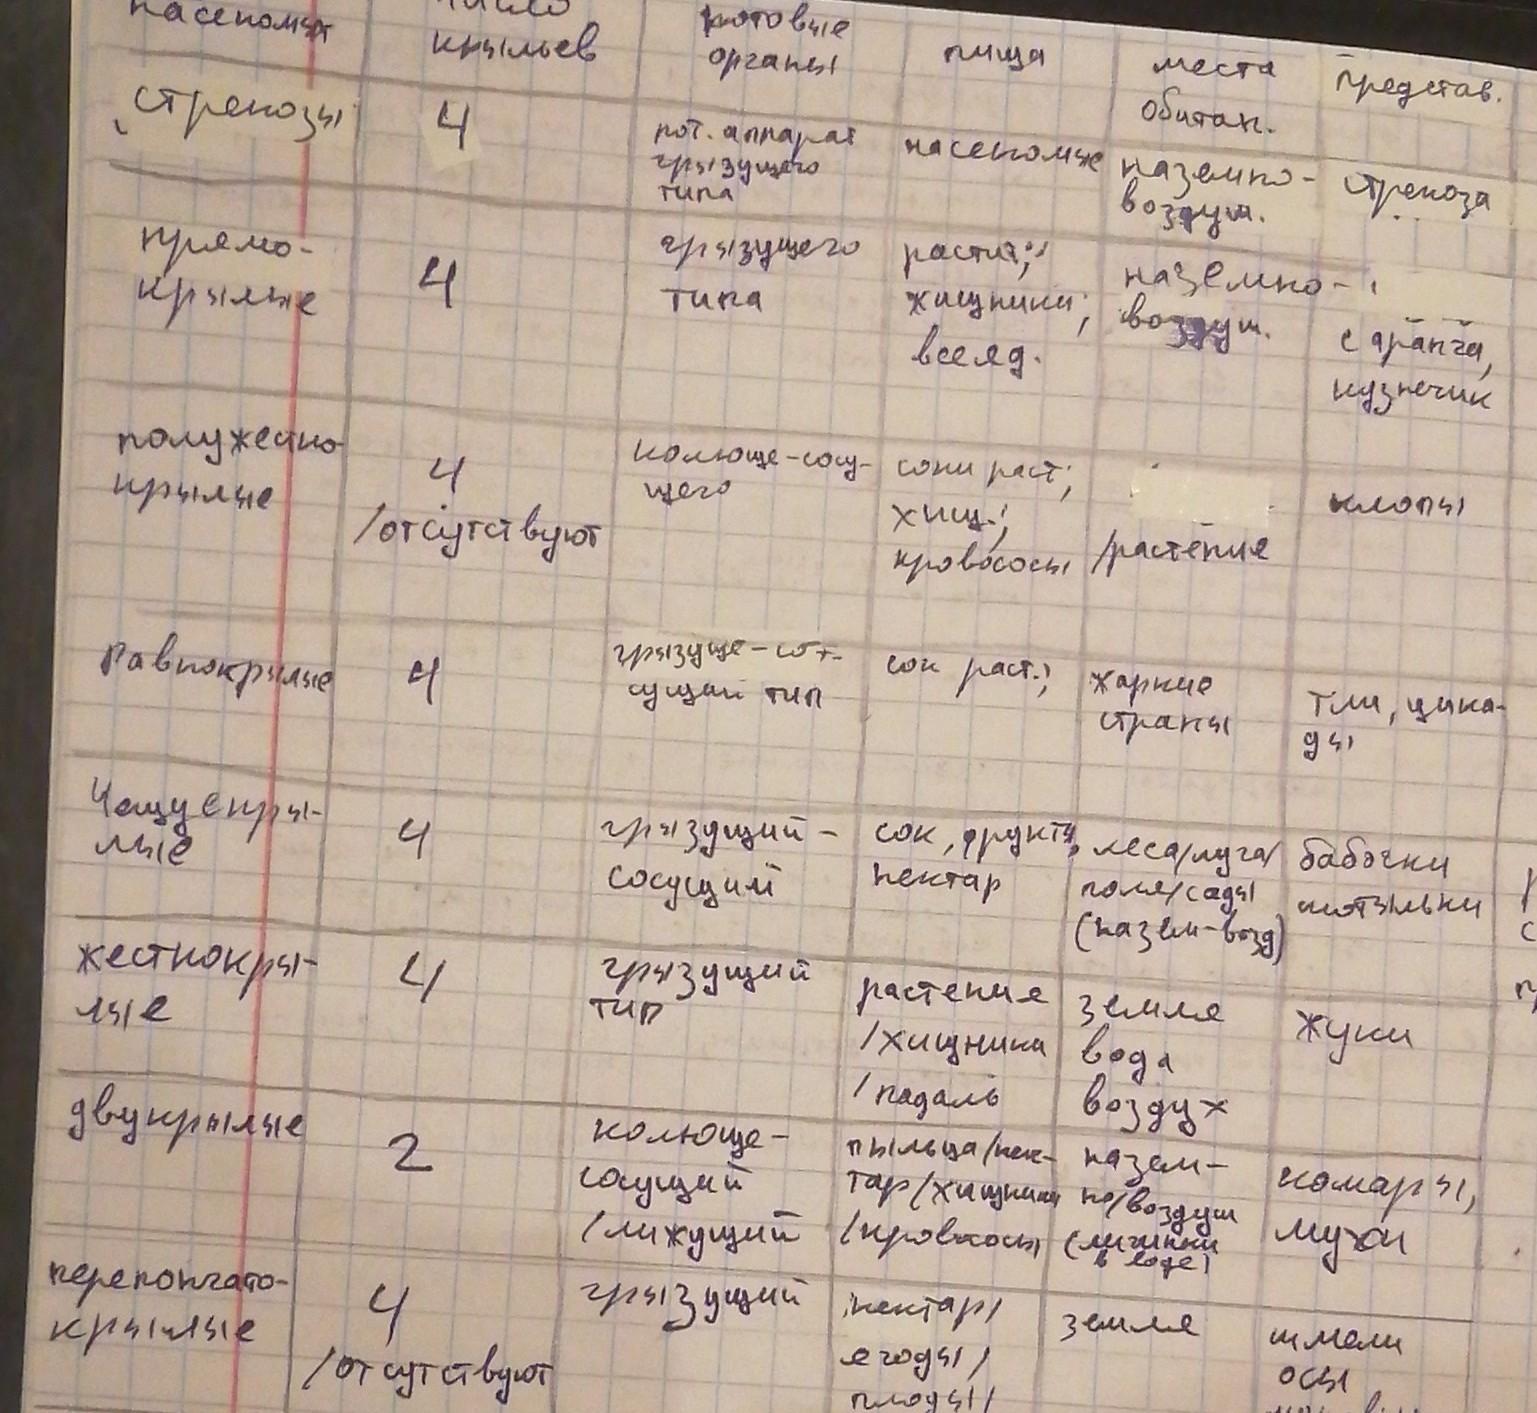 насекомых число ротовые пища места представ.
крыльев органы обитан.
стрекозы 4 рот. аппарат насекомые наземно- стрекоза
грызущего воздуш.
типа
прямо- 4 грызущего растит.; наземно-
крылые типа хищники; воздуш. саранча,
всеяд. кузнечик
полужестко- 4 колюще-сосу- соки раст; клопы
крылые /отсутствуют щего хищ.; /растение
кровососы
Равнокрылые 4 грызуще-со- сок раст.; жаркие тли, цика-
сущий тип страны ды
Чешуекры- 4 грызущий- сок, фрукты, леса/луга/ бабочки
лые сосущий нектар поля/сады мотыльки
(назем-возд)
жесткокры- 4 грызущий растение земля жуки
лые тип /хищника вода
/падаль воздух
двукрылые 2 колюще- пыльца/нек- назем- комары,
сосущий тар/хищники но/воздуш мухи
/лижущий /кровососы (личинки
в воде)
перепончато- 4 грызущий нектар/ земля шмели
крылые /отсутствуют ягоды/ осы
плоды/